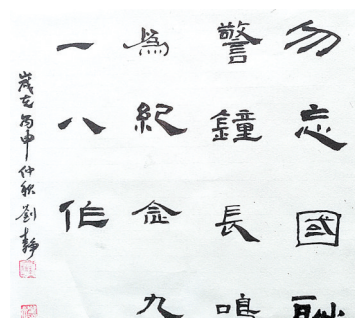 勿忘國耻
警鐘長鳴
為紀念九
一八作
歲在丙申仲秋劉靜